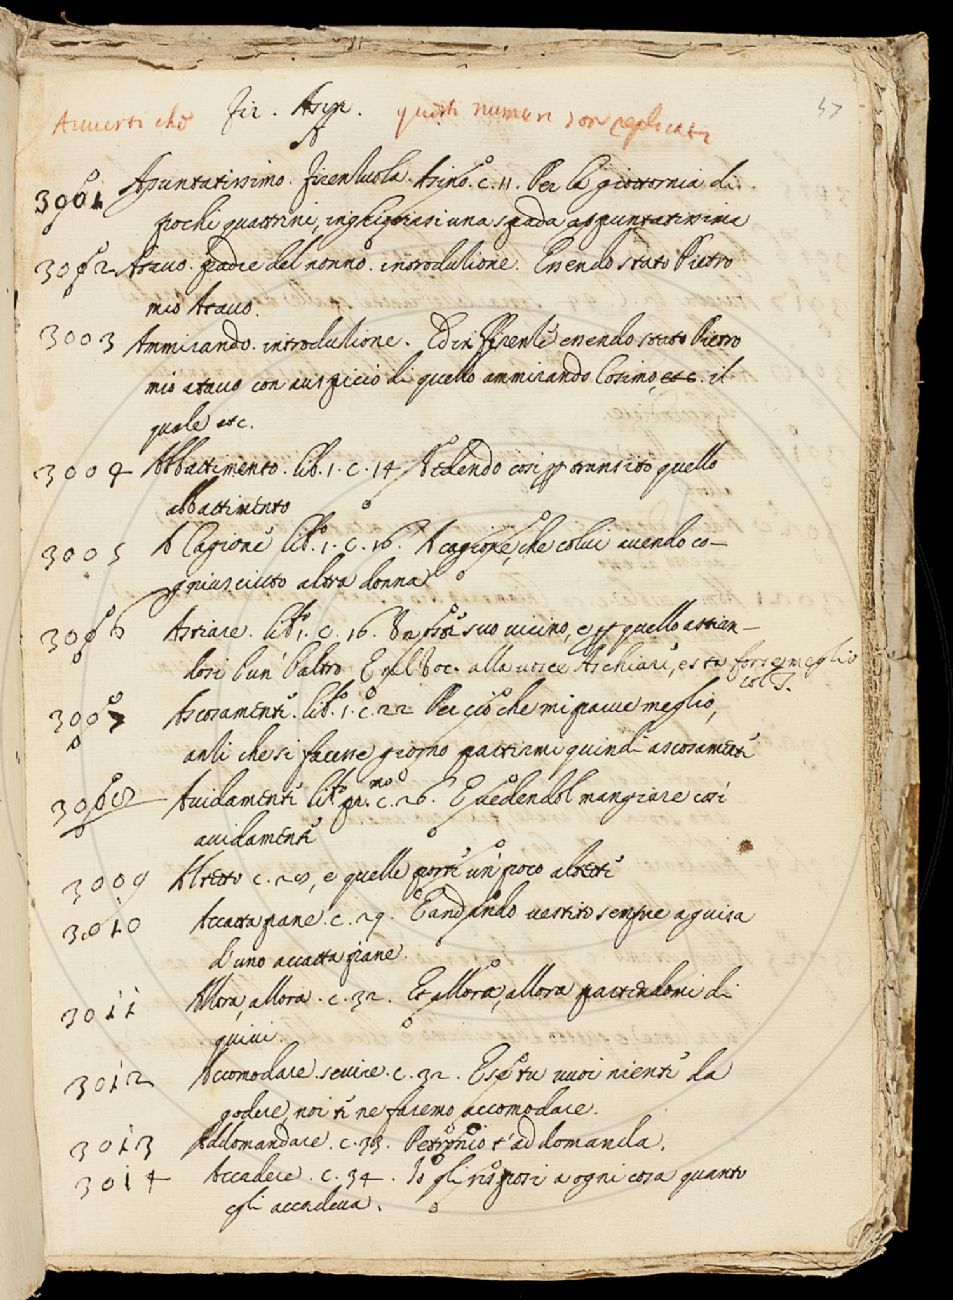 Auuerti che Fir. Asin. questi numeri son replicati
57
A
3001 Apuntatissimo. Firenzuola. Asino. c. 11. Per la giottornia di
pochi quattrini, inghiottirsi una spada appuntatissima
3002 Atauo. padre del nonno. introduzione. Essendo stato Pietro
mio Atauo.
3003 Ammirando. introduzione. Ed in Firenze essendo stato Pietro
mio atauo con auspicio di quello ammirando Cosimo, etc. il
quale etc.
3004 Abbattimento. lib. 1. c. 14 Vedendo così transito quello
abbattimento
3005 A Cagione lib. 1. c. 16. A cagione, che colui auendo co-
gniusciuto altra donna
3006 Astiare. lib. 1. c. 16. Un suo uicino, e quello astian-
dosi l'un l'altro. E nel Voc. alla uoce Aschiare, e sta forse meglio
col T.
3007 Ascosamente. lib. 1. c. 22 Per ciò che mi parue meglio,
anzi che si facesse giorno partirmi quindi ascosamente
3008 Auidamente lib. pmo. c. 26. E uedendol mangiare così
auidamente
3009 Alretto c. 28, e quelle porte un poco alrette
3010 Accatta pane. c. 29. E andando uestito sempre a guisa
d'uno accatta pane.
3011 Allora, allora. c. 32. Et allora, allora partendomi di
quiui.
3012 Accomodare seruire. c. 32. E se tu uuoi niente da
godere, noi te ne faremo accomodare.
3013 Addomandare. c. 33. Petronio t'addomanda.
3014 Accadere. c. 34. Io gli risposi a ogni cosa quanto
egli accadeua.